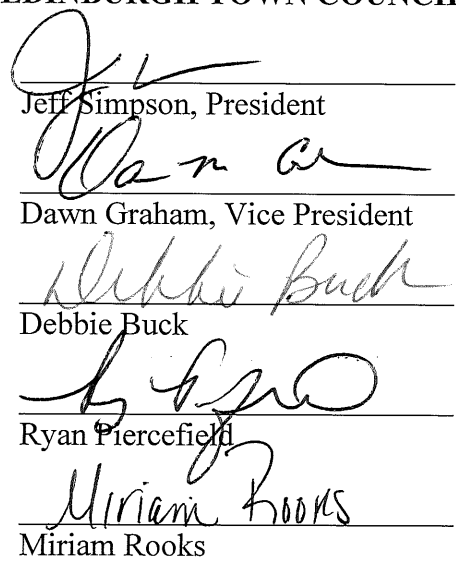 EDINBURGH TOWN COUNCIL
Jeff Simpson, President
Dawn Graham, Vice President
Debbie Buck
Debbie Buck
Ryan Piercefield
Miriam Rooks
Miriam Rooks